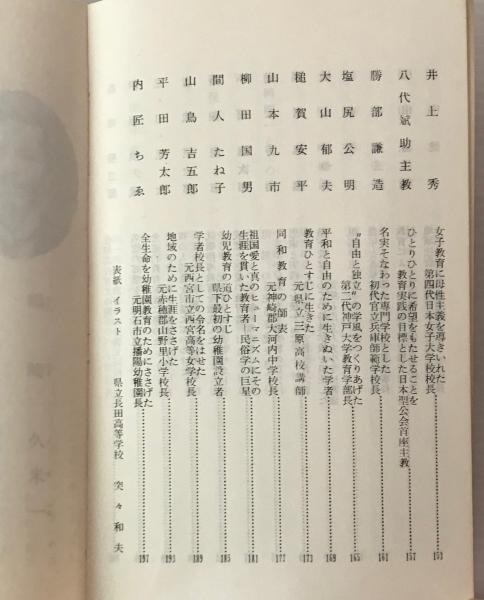 井上 秀
女子教育に母性主義を導きいれた
第四代日本女子大学校校長 153
八代斌助主教
ひとりひとりに希望をもたせることを
教育実践の目標とした日本聖公会首座主教 157
勝部謙造
名実そなわった専門学校とした
初代官立兵庫師範学校長 161
塩尻公明
"自由と独立"の学風をつくりあげた
第二代神戸大学教育学部長 165
大山郁夫
平和と自由のために生きぬいた学者 169
槌賀安平
教育ひとすじに生きた
元県立三原高校講師 173
山本九市
同和教育の師表
元神崎郡大河内中学校長 177
柳田国男
祖国愛と真のヒューマニズムにその
生涯を貫いた教育者―民俗学の巨星 181
間人たね子
幼児教育の道ひとすじ
県下最初の幼稚園設立者 185
山鳥吉五郎
学者校長としての令名をはせた
元西宮市立西宮高等女学校長 189
平田芳太郎
地域のために生涯をささげた
元赤穂郡山野里小学校長 193
内匠ちゑ
全生命を幼稚園教育のためにささげた
元明石市立播陽幼稚園長 197
表紙 イラスト 県立長田高等学校 突々和夫